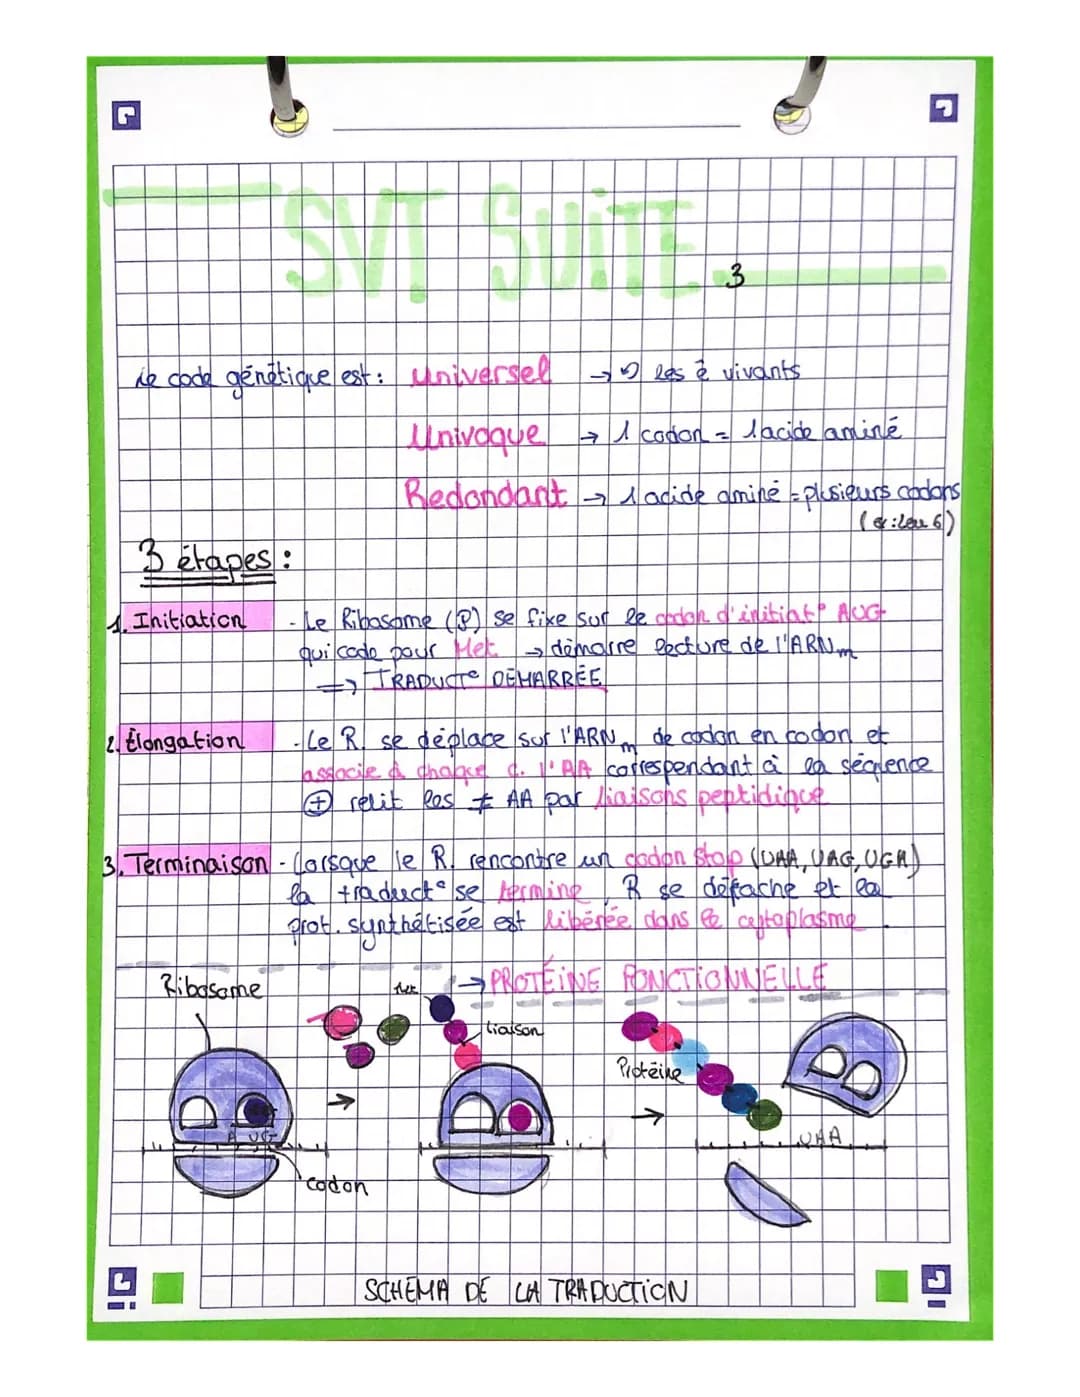 SVT SUITE
3
Le code génétique est : Universel → les ê vivants
Univoque → 1 codon = 1 acide aminé
Redondant → 1 acide aminé = plusieurs codons
(ex : Leu 6)
3 étapes :
1. Initiation - Le Ribosome (R) se fixe sur le codon d'initiat° AUG
qui code pour Met → démarre lecture de l'ARNm
=> TRADUCT° DÉMARRÉE
2. Élongation - Le R. se déplace sur l'ARNm de codon en codon et
associe à chaque c. l'AA correspondant à la séquence
⊕ relit les ≠ AA par liaisons peptidique
3. Terminaison - Lorsque le R. rencontre un codon stop (UAA, UAG, UGA)
la traduct° se termine, R se détache et la
prot. synthétisée est libérée dans le cytoplasme
→ PROTÉINE FONCTIONNELLE
Ribosome
Met
liaison
Protéine
AUG
UAA
codon
SCHÉMA DE LA TRADUCTION